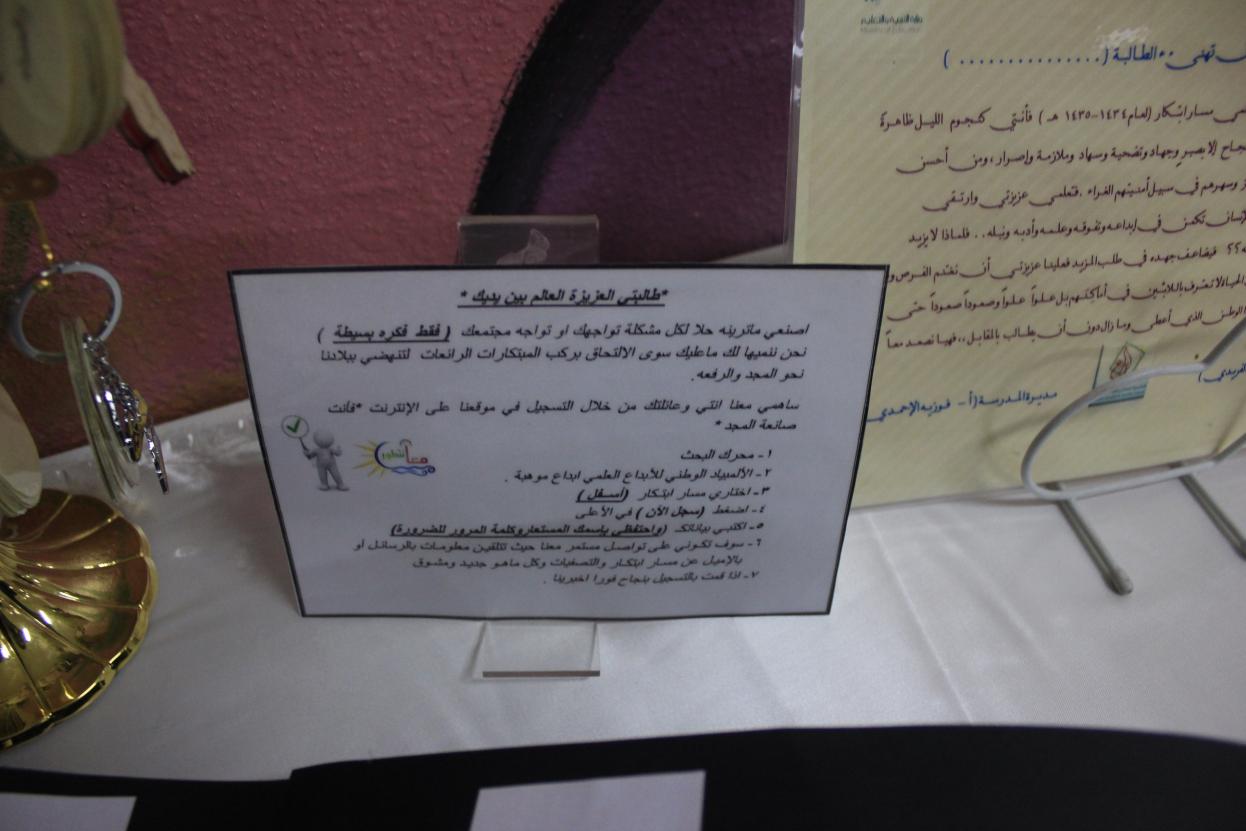 *طالبتي العزيزة العالم بين يديك *
اصنعي ماترينه حلا لكل مشكلة تواجهك او تواجه مجتمعك ( فقط فكره بسيطة )
نحن ننميها لك ماعليك سوى الالتحاق بركب المبتكرات الرائعات لتنهضي ببلادنا
نحو المجد والرفعه.
ساهمي معنا انتي وعائلتك من خلال التسجيل في موقعنا على الإنترنت *فأنت
صانعة المجد *
١- محرك البحث
٢- الألمبياد الوطني للأبداع العلمي ابداع موهبة .
٣- اختاري مسار ابتكار (أسفل)
٤- اضغط (سجل الآن) في الأعلى
٥- اكتبي بياناتك (واحتفظي بإسمك المستعاروكلمة المرور للضرورة)
٦- سوف تكوني على تواصل مستمر معنا حيث تتلقين معلومات بالرسائل أو
بالإميل عن مسار ابتكار والتصفيات وكل ماهو جديد ومشوق
٧- اذا قمت بالتسجيل بنجاح فورا اخبرينا .
معا نتطور
وزارة التربية والتعليم
Ministry of Education
تهنى ..الطالبة (................)
مسارابتكار (لعام ١٤٣٤-١٤٣٥ هـ ) فأنتي كنجوم الليل ظاهرة
إلا بصبر وجهاد وتضحية وسهاد وملازمة وإصرار ، ومن أحسن
وسهرهم في سبيل أمنيتهم الغراء .فتعلمي عزيزتي وارتقي
تكمن في إبداعه وتفوقه وعلمه وأدبه ونبله.. فلماذا لا يزيد
؟؟ فيضاعف جهده في طلب المزيد فعلينا عزيزتي أن نغتنم الفرص و
لا تتشرف باللابثين في أماكنهم بل علواً علواً وصعوداً صعوداً حتى
الوطن الذي أعطى وما زال دون أن يطالب بالمقابل ،،فهيا نصعد معاً
مديرة المدرسة (أ- فوزيه الإحمدي